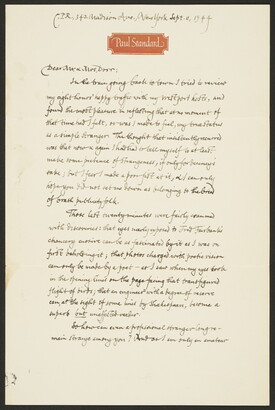 C.P.R., 342 Madison Ave., New York Sept. 8, 1944
Paul Standard
Dear Mr. & Mrs. Door:
In the train going back to town I tried to review
my eight hours' happy traffic with my Westport hosts, and
found the most pleasure in reflecting that at no moment of
that time had I felt, or was I made to feel, my true status
as a simple stranger. The thought that insistently recurred
was that now & again I had had to tell myself to at least
make some pretence of strangeness, if only for decency's
sake; but I fear I made a poor fist at it, & I can only
hope you did not set me down as belonging to the breed
of brash publicity folk.
Those last twenty minutes were fairly crammed
with discoveries: that eyes newly exposed to Fairbanks'
chancery cursive can be as fascinated by it as I was on
first beholding it; that photos charged with poetic vision
can only be made by a poet — as I saw when my eyes took
in the opening lines on the page facing that transfigured
flight of birds; that an engineer with a degree of reserve
can, at the sight of some lines by Shakespeare, become a
superb but unaffected reader.
So how can even a professional stranger long re-
main strange among you? And as I am only an amateur